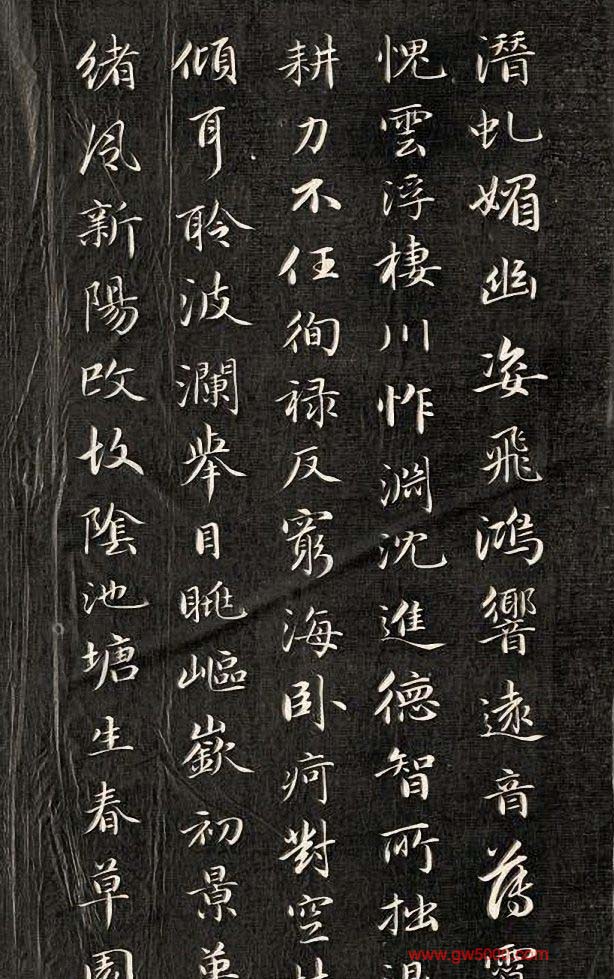 潛虬媚幽姿飛鴻響遠音薄霄
愧雲浮棲川怍淵沈進德智所拙退
耕力不任徇祿反窮海臥痾對空林
傾耳聆波瀾舉目眺嶇嶔初景革
緒風新陽改故陰池塘生春草園